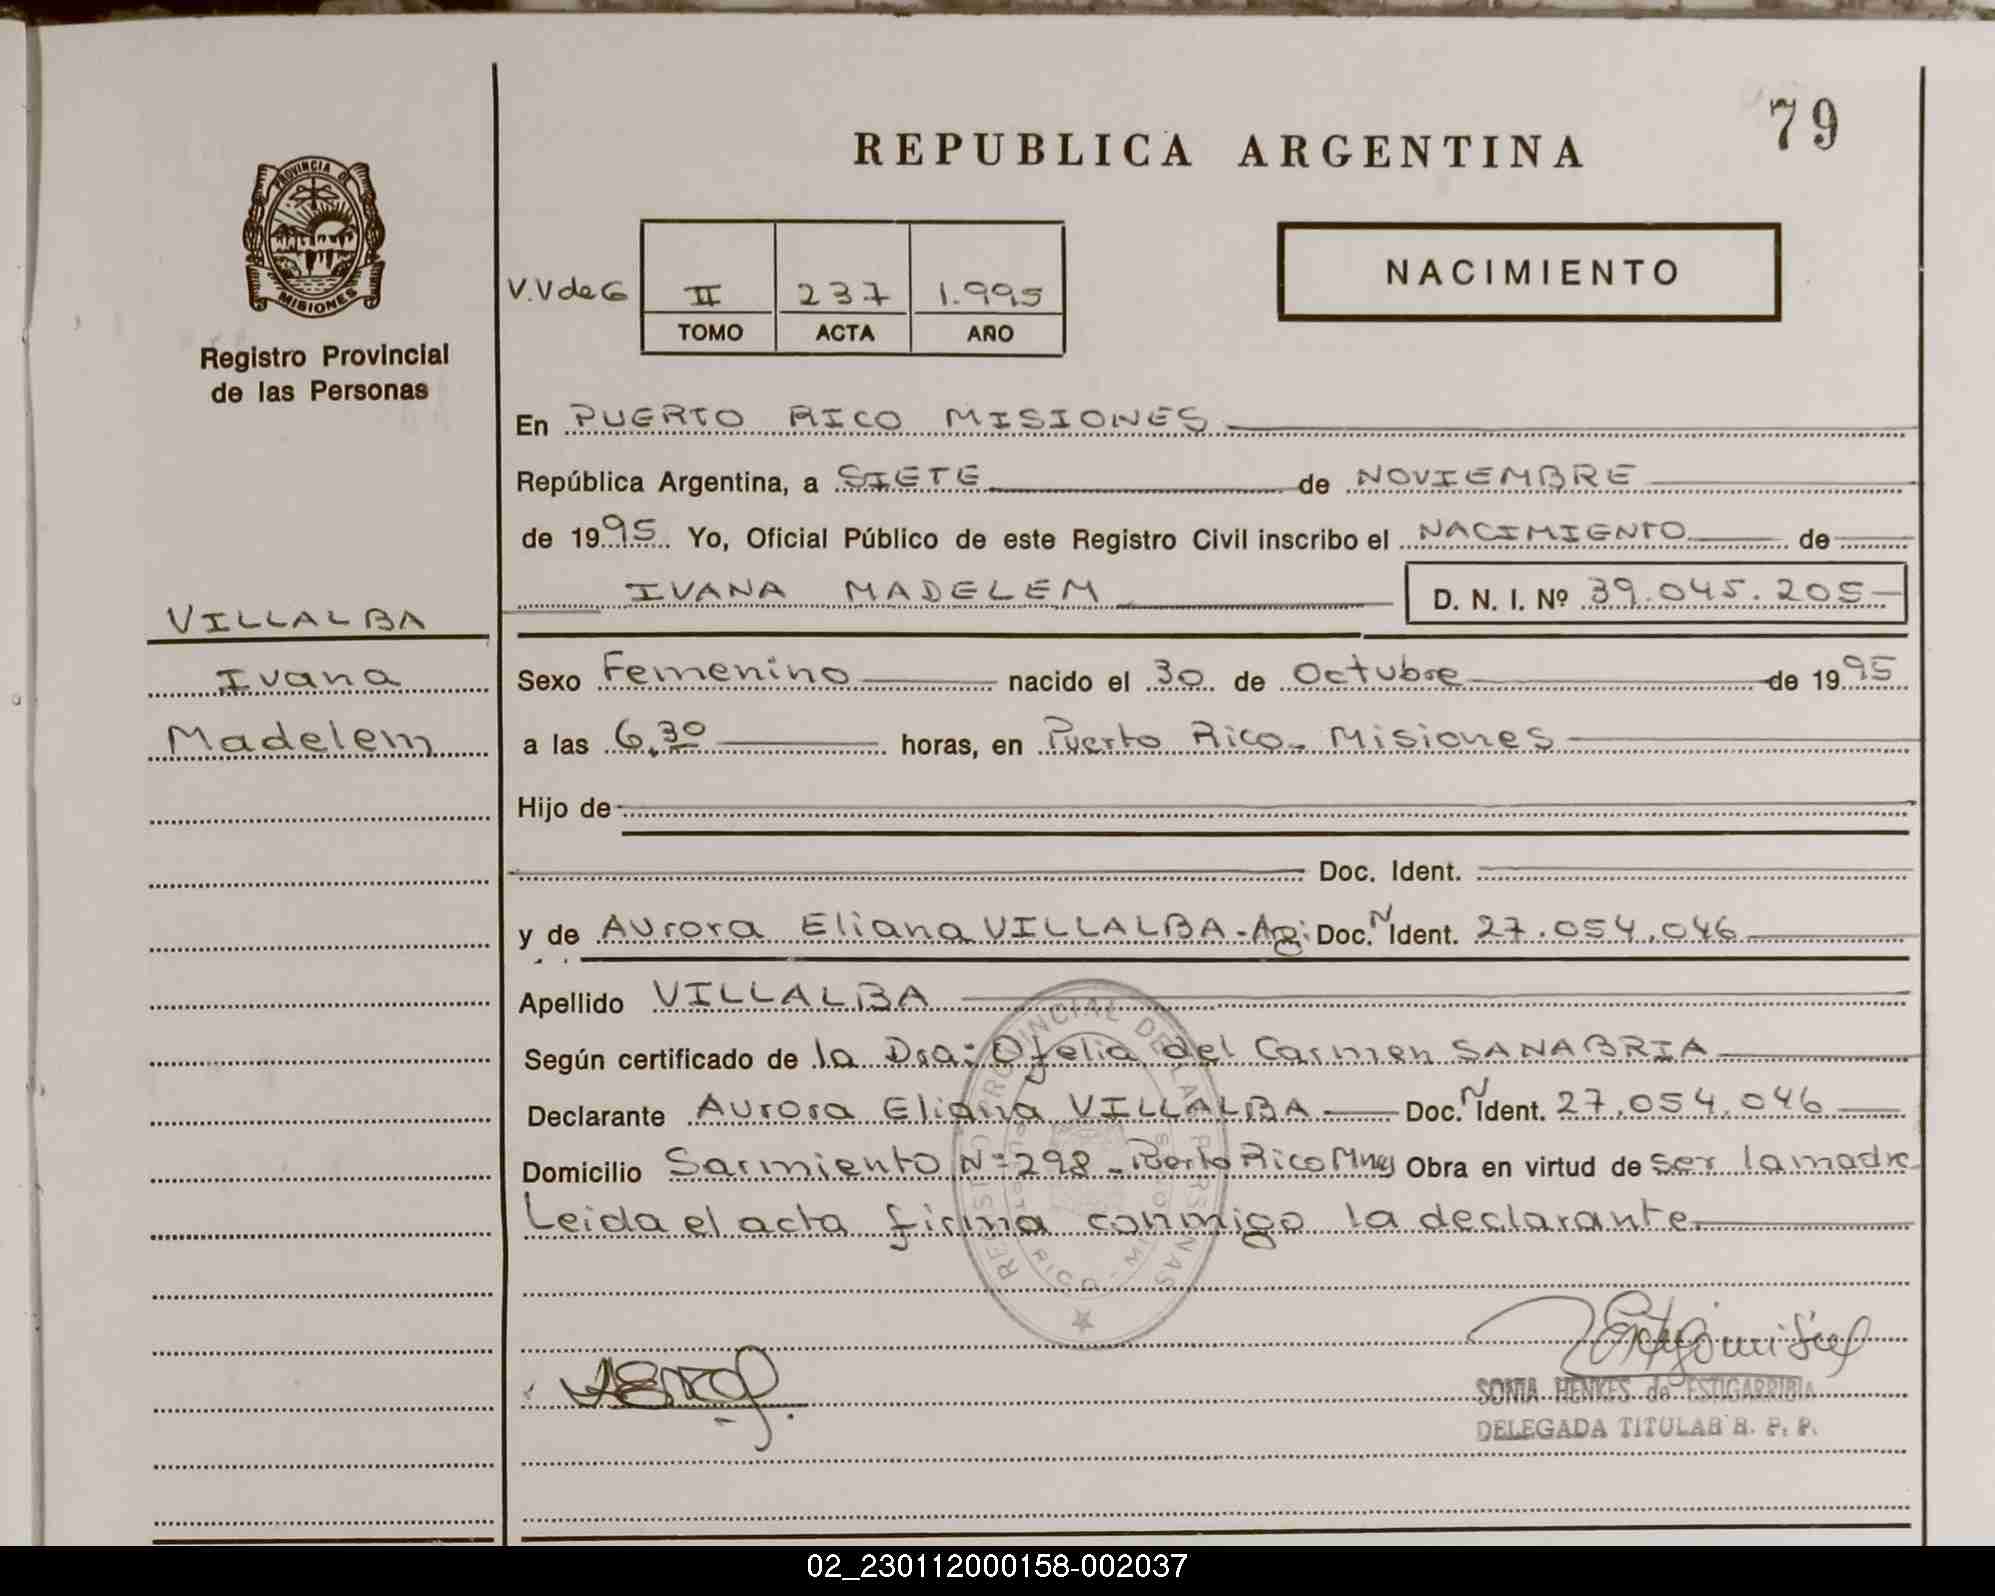 79
REPUBLICA ARGENTINA
PROVINCIA D
MISIONES
Registro Provincial
de las Personas
NACIMIENTO
V.V de G II 237 1.995
TOMO ACTA AÑO
En PUERTO RICO MISIONES
República Argentina, a SIETE de NOVIEMBRE
de 1995 Yo, Oficial Público de este Registro Civil inscribo el NACIMIENTO de
IVANA MADELEM D. N. I. Nº 39.045.205
VILLALBA
Ivana
Madelem
Sexo Femenino nacido el 30 de Octubre de 1995
a las 6,30 horas, en Puerto Rico- Misiones
Hijo de
Doc. Ident.
y de Aurora Eliana VILLALBA-Ag: Doc. N Ident. 27.054.046
Apellido VILLALBA
Según certificado de la Dra: Ofelia del Carmen SANABRIA
Declarante Aurora Eliana VILLALBA Doc. N Ident. 27.054.046
Domicilio Sarmiento Nº 298 - Puerto Rico Mnes Obra en virtud de ser la madre
Leida el acta firma conmigo la declarante
REGISTRO PROVINCIAL DE LAS PERSONAS
RICO - MISIONES
SONIA HENKES de ESTIGARRIBIA
DELEGADA TITULAR R. P. P.
02_230112000158-002037